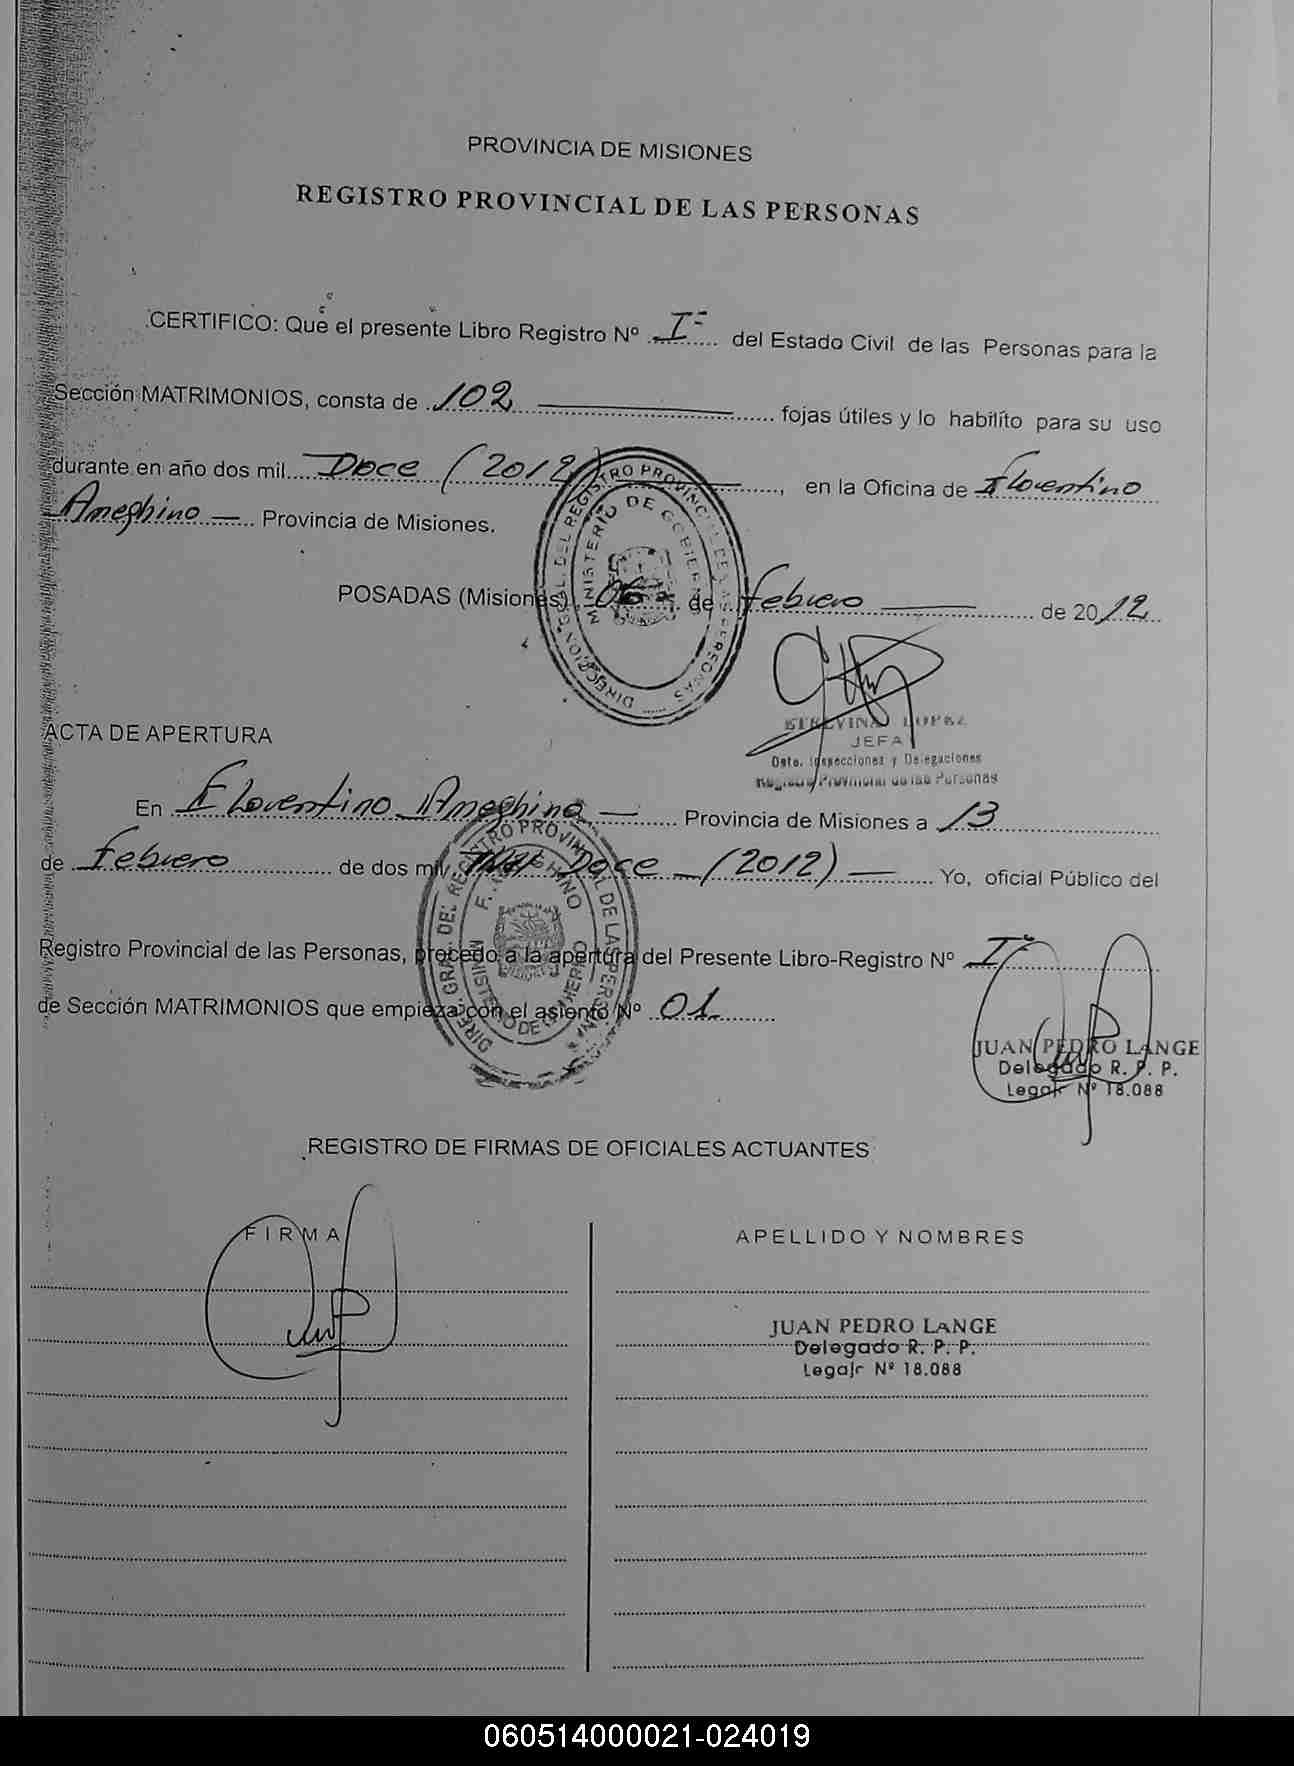 PROVINCIA DE MISIONES
REGISTRO PROVINCIAL DE LAS PERSONAS
CERTIFICO: Que el presente Libro Registro Nº I= del Estado Civil de las Personas para la
Sección MATRIMONIOS, consta de 102 fojas útiles y lo habilito para su uso
durante en año dos mil Doce (2012), en la Oficina de Florentino
Ameghino — Provincia de Misiones.
POSADAS (Misiones), 06 de febrero de 2012
DIRECCION GRAL. DEL REGISTRO PROVINCIAL DE LAS PERSONAS
MINISTERIO DE GOBIERNO
LOPEZ
JEFA
Dpto. Inspecciones y Delegaciones
Registro Provincial de las Personas
ACTA DE APERTURA
En Florentino Ameghino — Provincia de Misiones a 13
de febrero de dos mil Doce — (2012) — Yo, oficial Público del
Registro Provincial de las Personas, procedo a la apertura del Presente Libro-Registro Nº I=
de Sección MATRIMONIOS que empieza con el asiento Nº 01.
DIREC. GRAL. DEL REGISTRO PROVINCIAL DE LAS PERSONAS
MINISTERIO DE GOBIERNO
JUAN PEDRO LANGE
Delegado R. P. P.
Legajr Nº 18.088
REGISTRO DE FIRMAS DE OFICIALES ACTUANTES
FIRMA
APELLIDO Y NOMBRES
JUAN PEDRO LANGE
Delegado R. P. P.
Legajr Nº 18.088
060514000021-024019